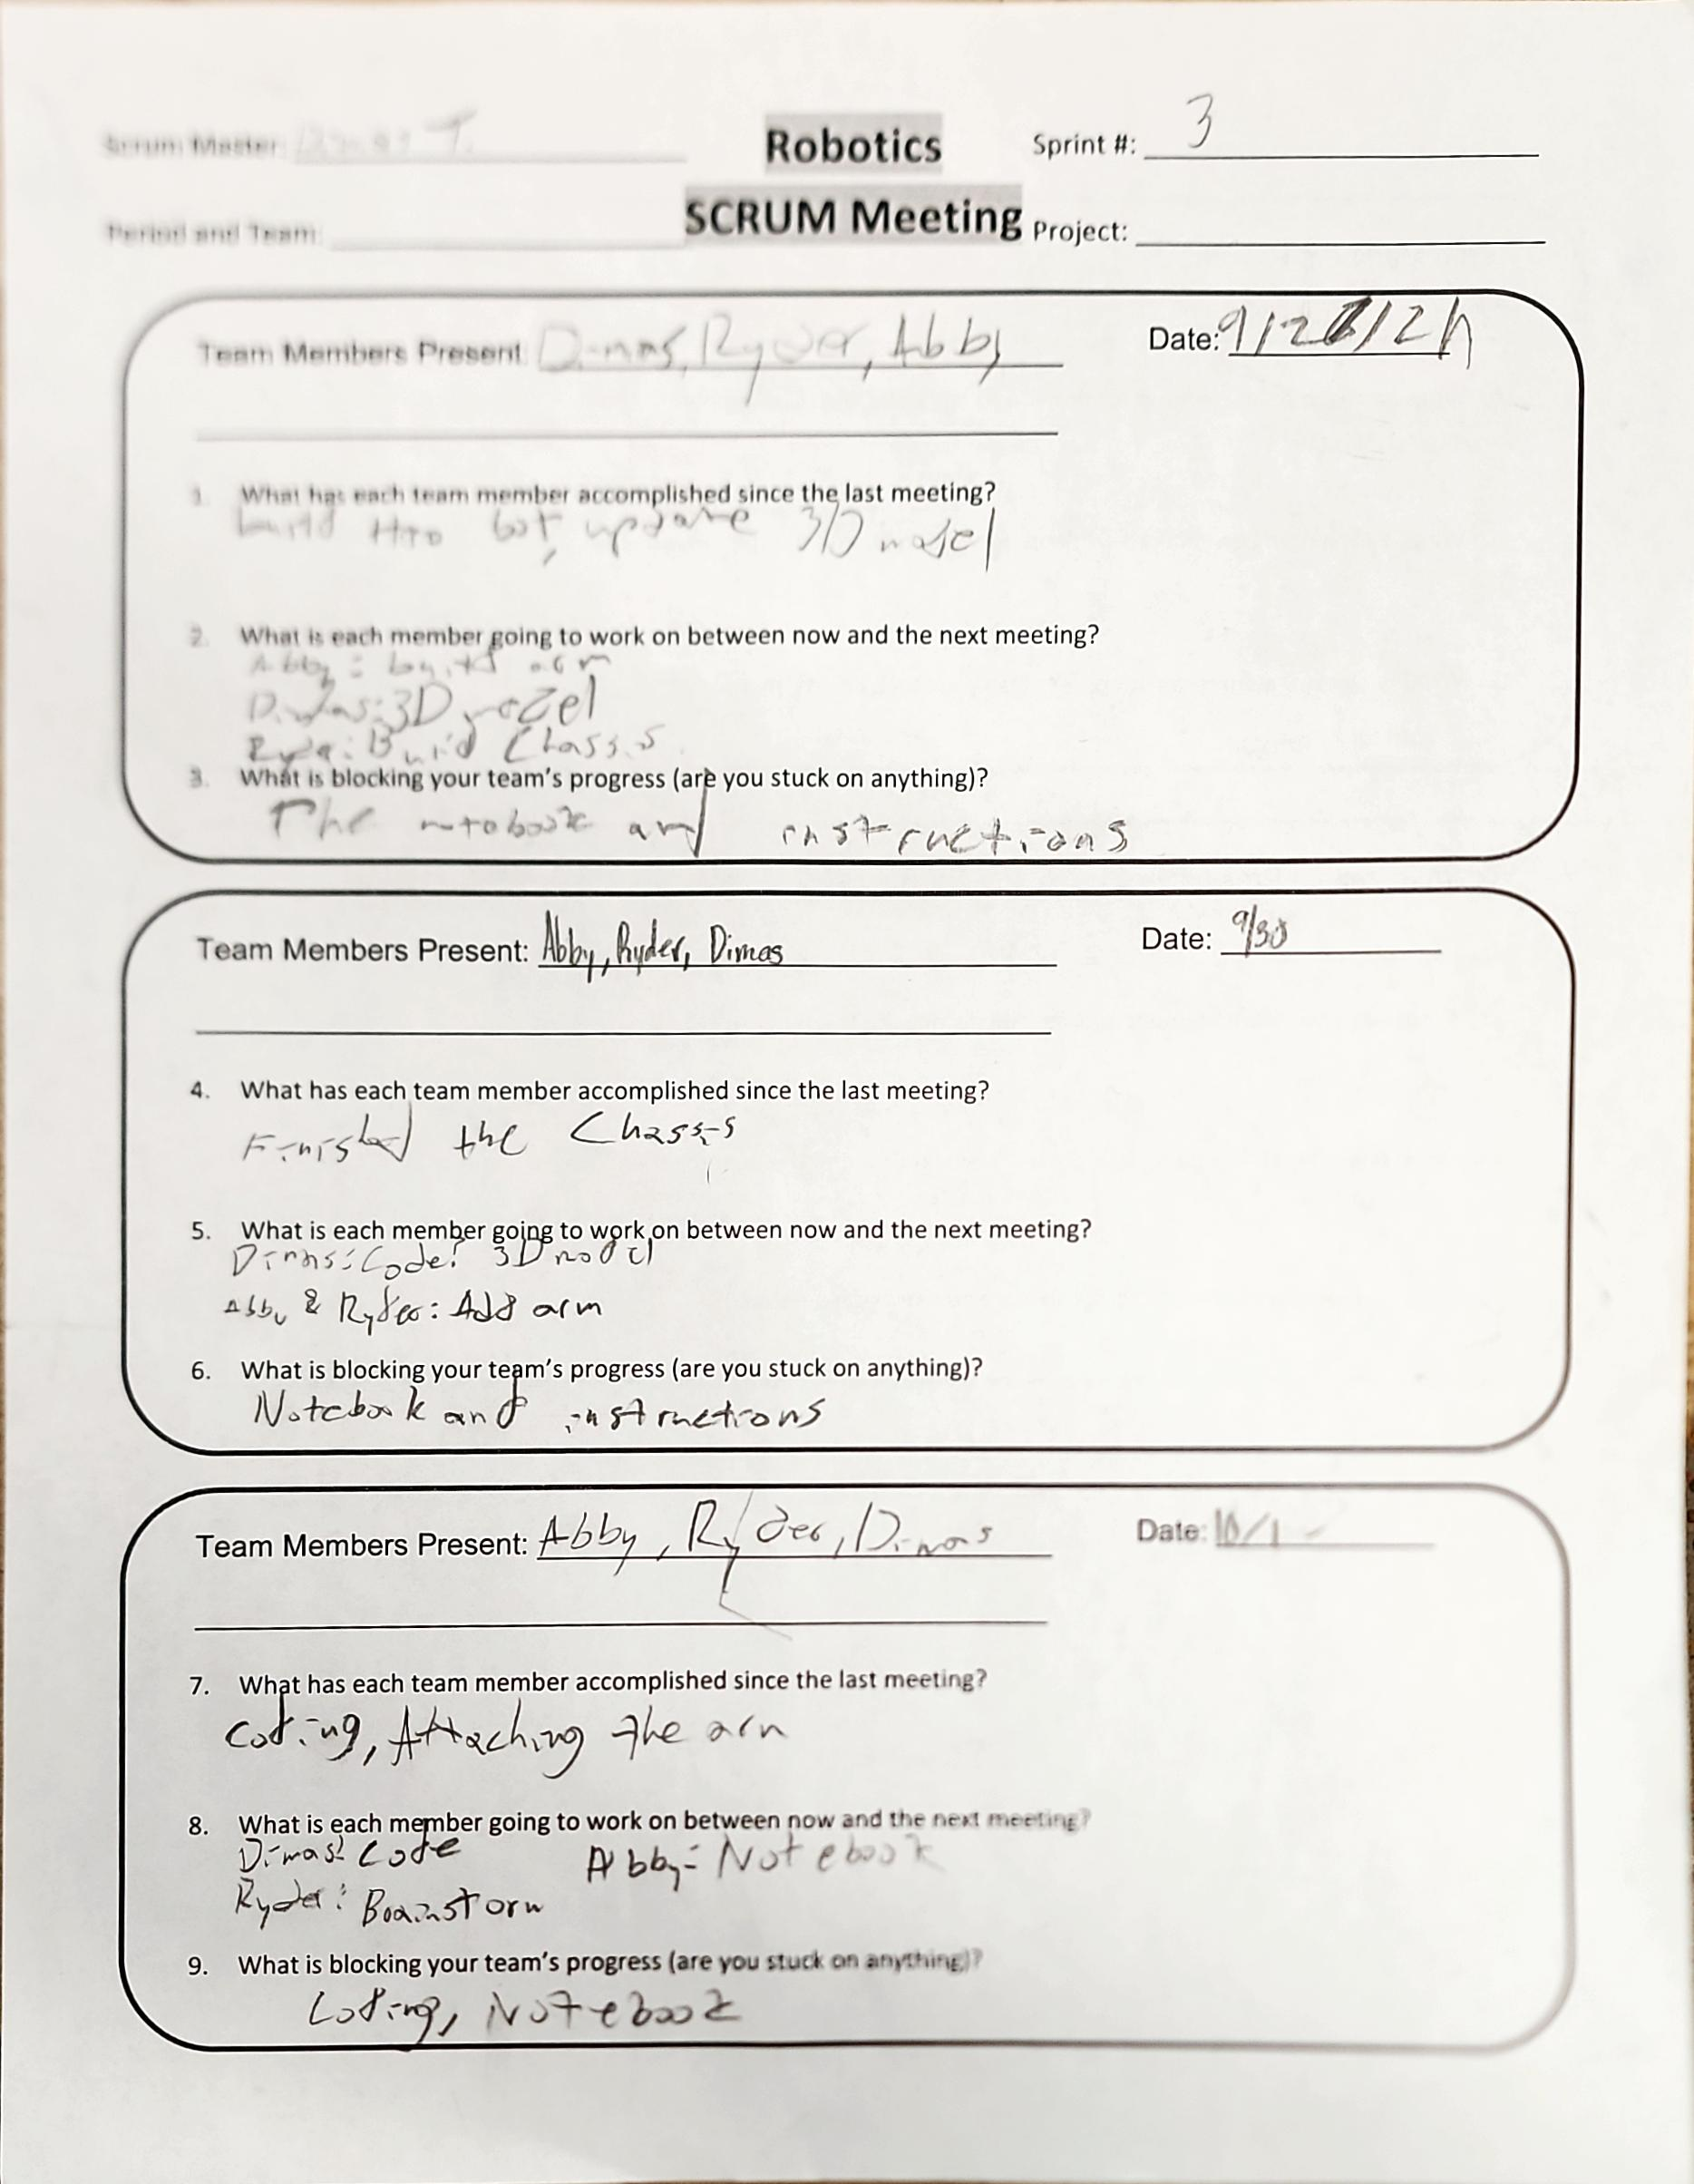 Scrum Master: Dimas T.
Robotics
Sprint #: 3
SCRUM Meeting
Period and Team:
Project:
Team Members Present: Dimas, Ryder, Abby
Date: 9/2 /2
1. What has each team member accomplished since the last meeting?
build bot, update 3D model
2. What is each member going to work on between now and the next meeting?
Abby: build arm
Dimas: 3D model
Ryder: Build Chassis
3. What is blocking your team's progress (are you stuck on anything)?
The notobook and instructions
Team Members Present: Abby, Ryder, Dimas
Date: 9/30
4. What has each team member accomplished since the last meeting?
Finished the Chassis
5. What is each member going to work on between now and the next meeting?
Dimas: Code! 3D model
Abby & Ryder: Add arm
6. What is blocking your team's progress (are you stuck on anything)?
Notebook and instructions
Team Members Present: Abby, Ryder, Dimas
Date: 10/1
7. What has each team member accomplished since the last meeting?
Coding, Attaching the arm
8. What is each member going to work on between now and the next meeting?
Dimas: Code Abby: Notebook
Ryder: Brainstorm
9. What is blocking your team's progress (are you stuck on anything)?
Coding, Notebook